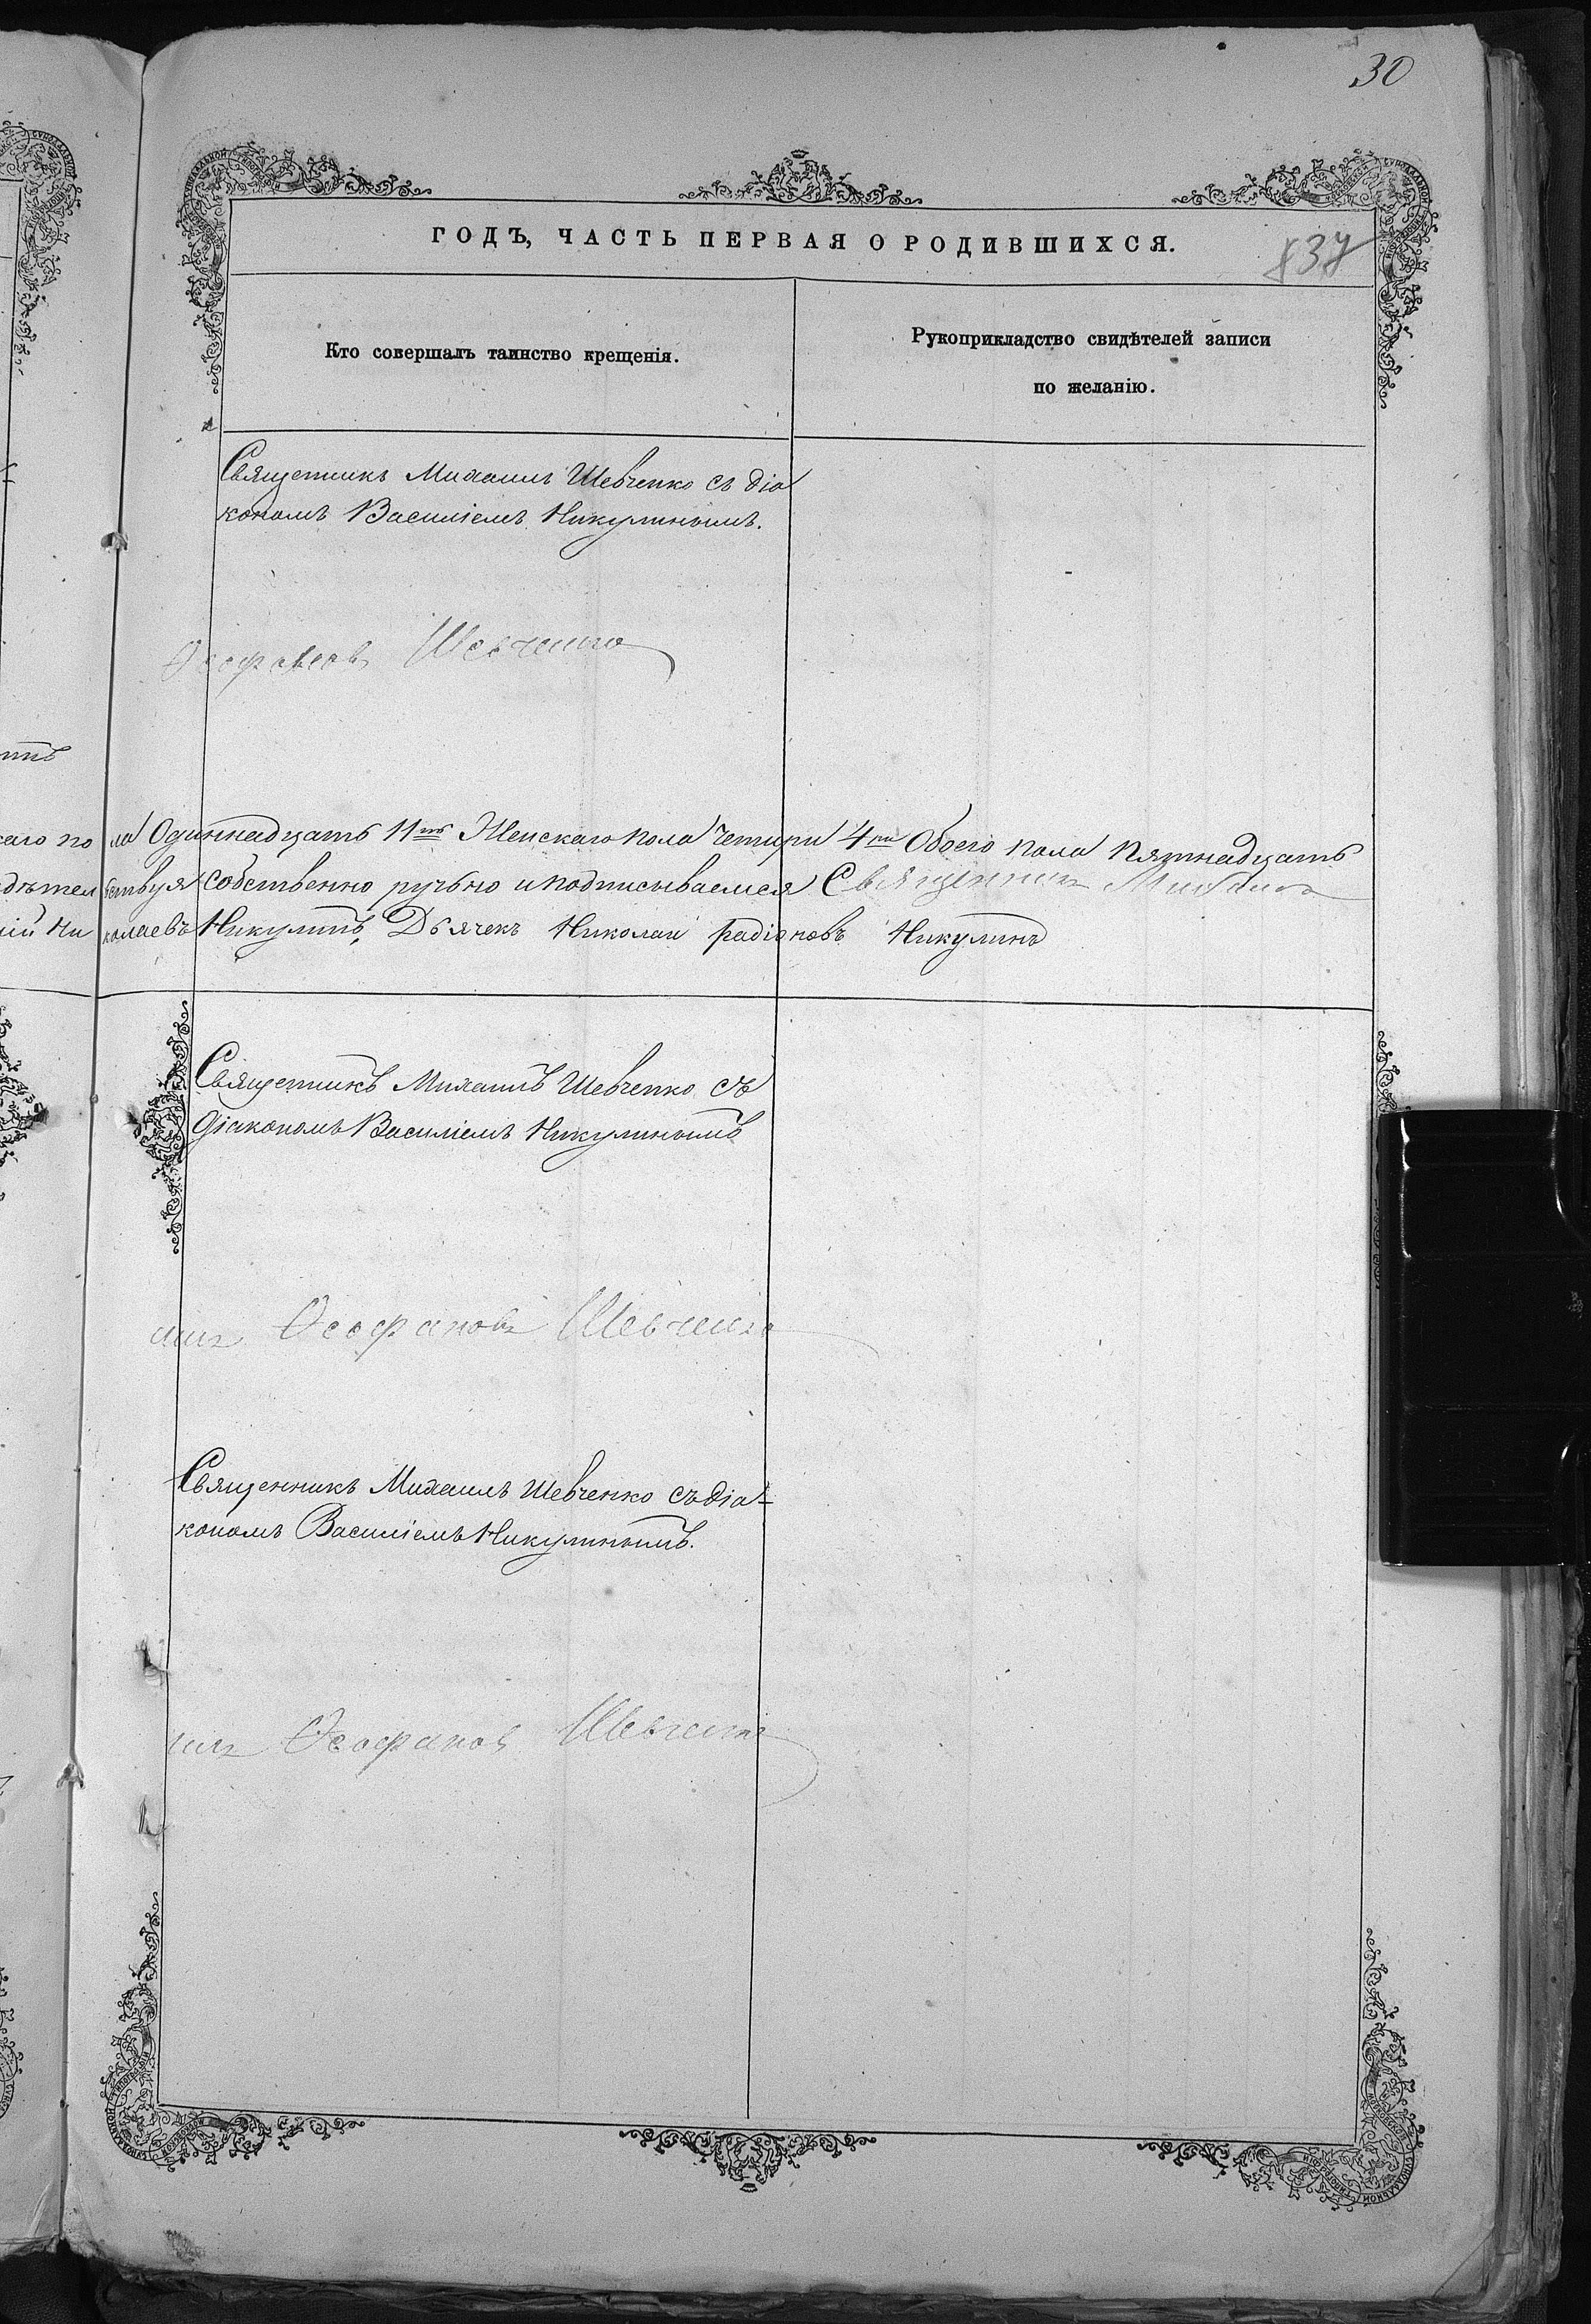 30
ГОДЪ, ЧАСТЬ ПЕРВАЯ О РОДИВШИХСЯ.
837
Кто совершалъ таинство крещенія.
Рукоприкладство свидѣтелей записи
по желанію.
Священникъ Михаилъ Шевченко съ діа
кономъ Василіемъ Никулинымъ.
Ѳеофановъ Шевченко
ла Одиннадцать 11ть Женскаго пола Четыри 4ри Обоего пола Пятнадцать
ствуя собственно ручьно и подписываемся Священникъ Михаилъ
колаевъ Никулинъ, Дьячекъ Николай радіоновъ Никулинъ
Священникъ Михаилъ Шевченко съ
діакономъ Василіемъ Никулинымъ
Ѳеофановъ Шевченко
Священникъ Михаилъ Шевченко съ діа-
кономъ Василіемъ Никулинымъ.
Ѳеофановъ Шевченко